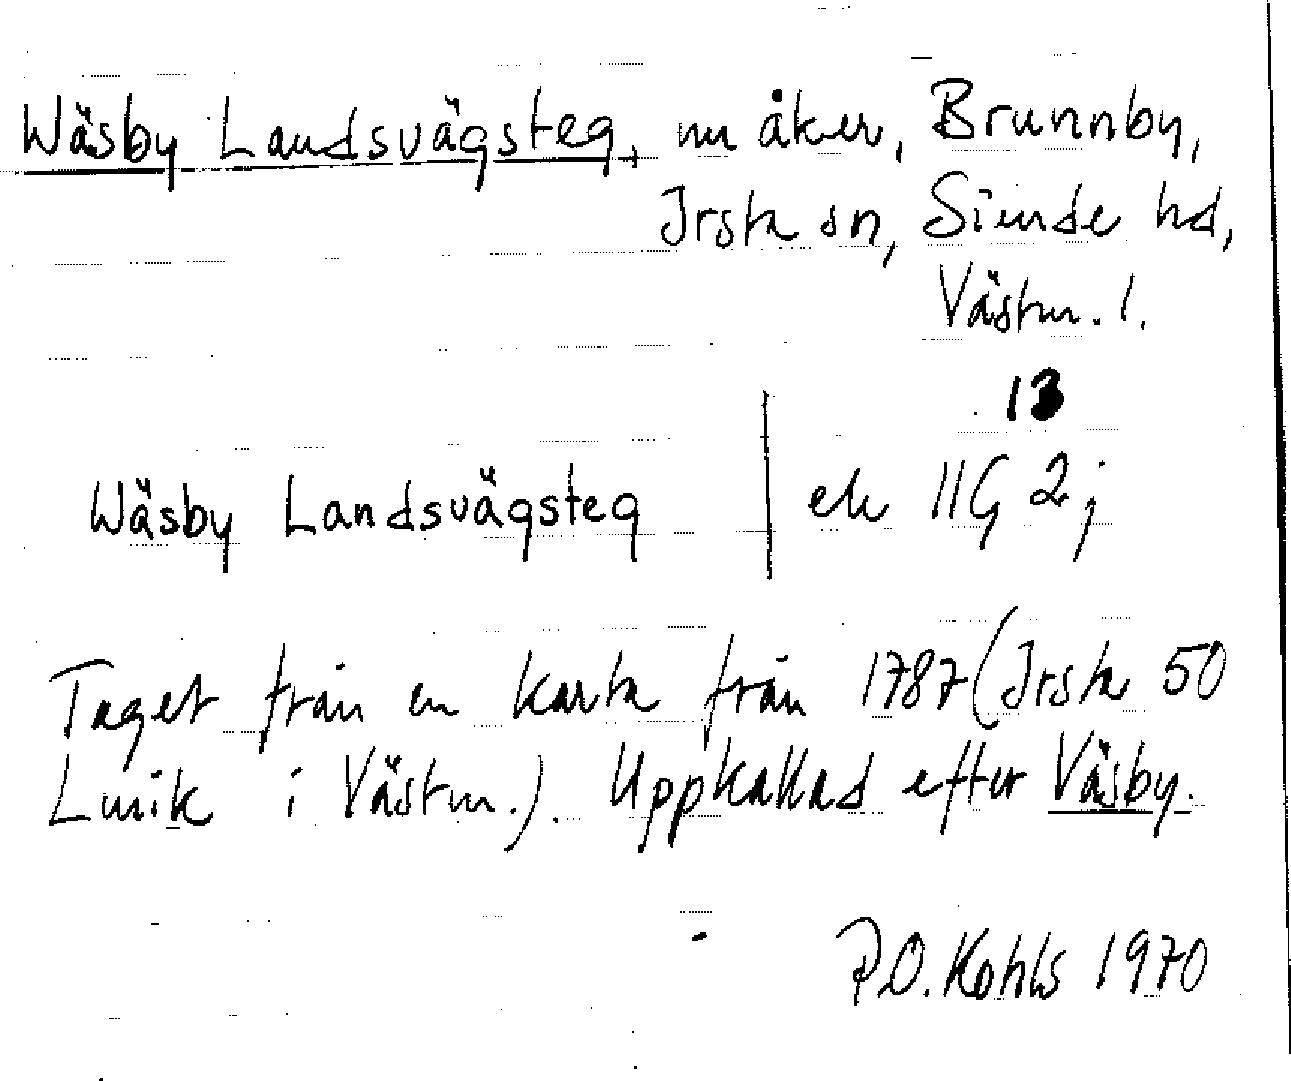 Wäsby Landsvägsteg, nu åker, Brunnby,
Irsta sn, Siende hd,
Västm. l.
13
Wäsby Landsvägsteg | ek 11G 2j
Taget från en karta från 1787 (Irsta 50
Lmik i Västm.). Uppkallad efter Väsby.
P.O. Kohls 1970